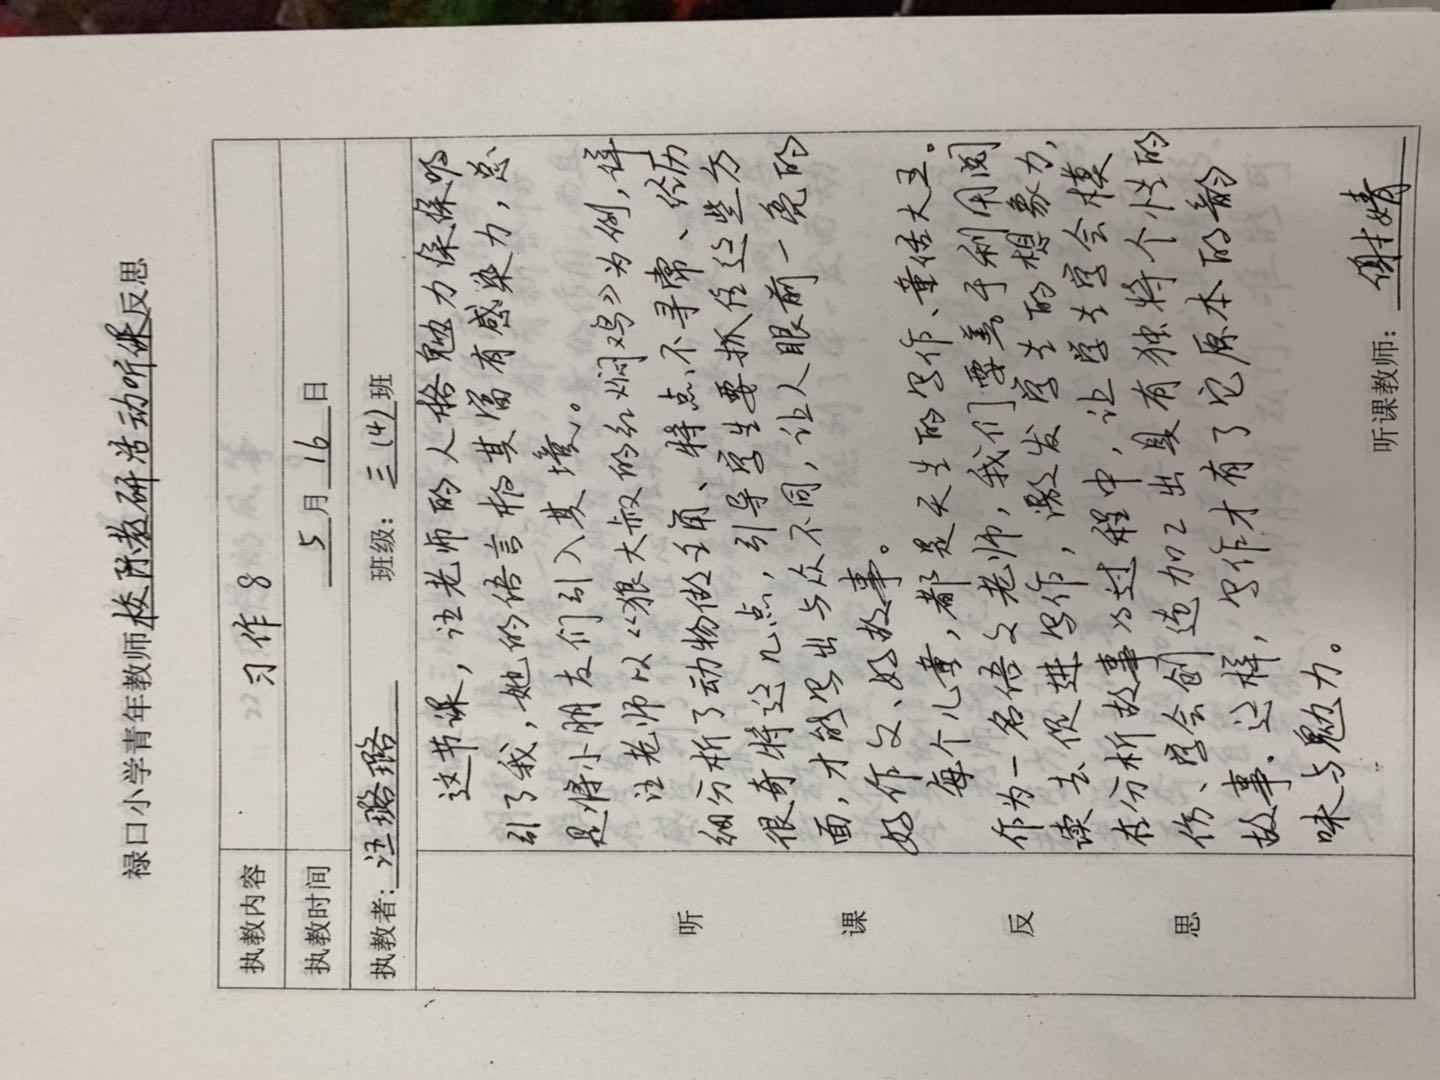 禄口小学青年教师校附教研活动听课反思
执教内容 习作8
执教时间 5月16日
执教者：汪璐璐 班级：三(4)班
听课反思
这节课，汪老师的人格魅力深深吸
引了我，她的语言极其富有感染力，总
是将小朋友们引入其境。
汪老师以《狼大叔的红焖鸡》为例，详
细分析了动物做主角、特点不寻常、经历
很奇特这几点，引导学生要抓住这些方
面，才能写出与众不同，让人眼前一亮的
好作文、好故事。
每个儿童，都是天生的写作、童话大王。
作为一名语文老师，我们要善于利用阅
读去促进写作，激发学生的想象力，
在分析故事的过程中，让学生学会模
仿、学会创造加工出具有独特个性的
故事、这样，写作才有了它原本的韵
味与魅力。
听课教师：谢婧